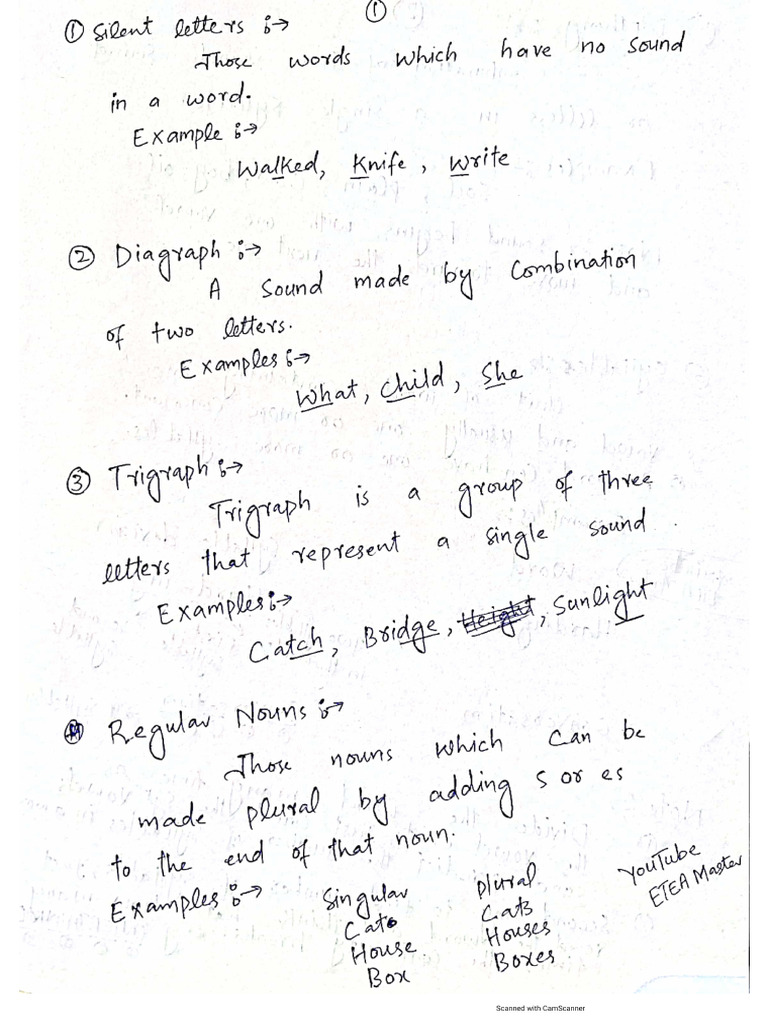 ①
① Silent letters :->
Those words which have no sound
in a word.
Example :->
Walked, Knife, Write
② Diagraph :->
A sound made by combination
of two letters.
Examples :->
What, Child, She
③ Trigraph :->
Trigraph is a group of three
letters that represent a single sound.
Examples :->
Catch, Bridge, Height, Sunlight
④ Regular Nouns :->
Those nouns which can be
made plural by adding s or es
to the end of that noun.
Examples :-> Singular Plural
Cat Cats
House Houses
Box Boxes
YouTube
ETEA Master
Scanned with CamScanner